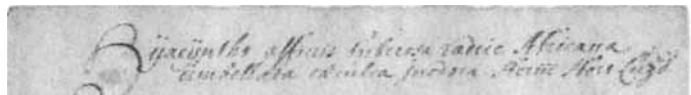 Hyacintho affinis tuberosa radice Africana
umbellata cærulea inodora Herm Hort Lugd